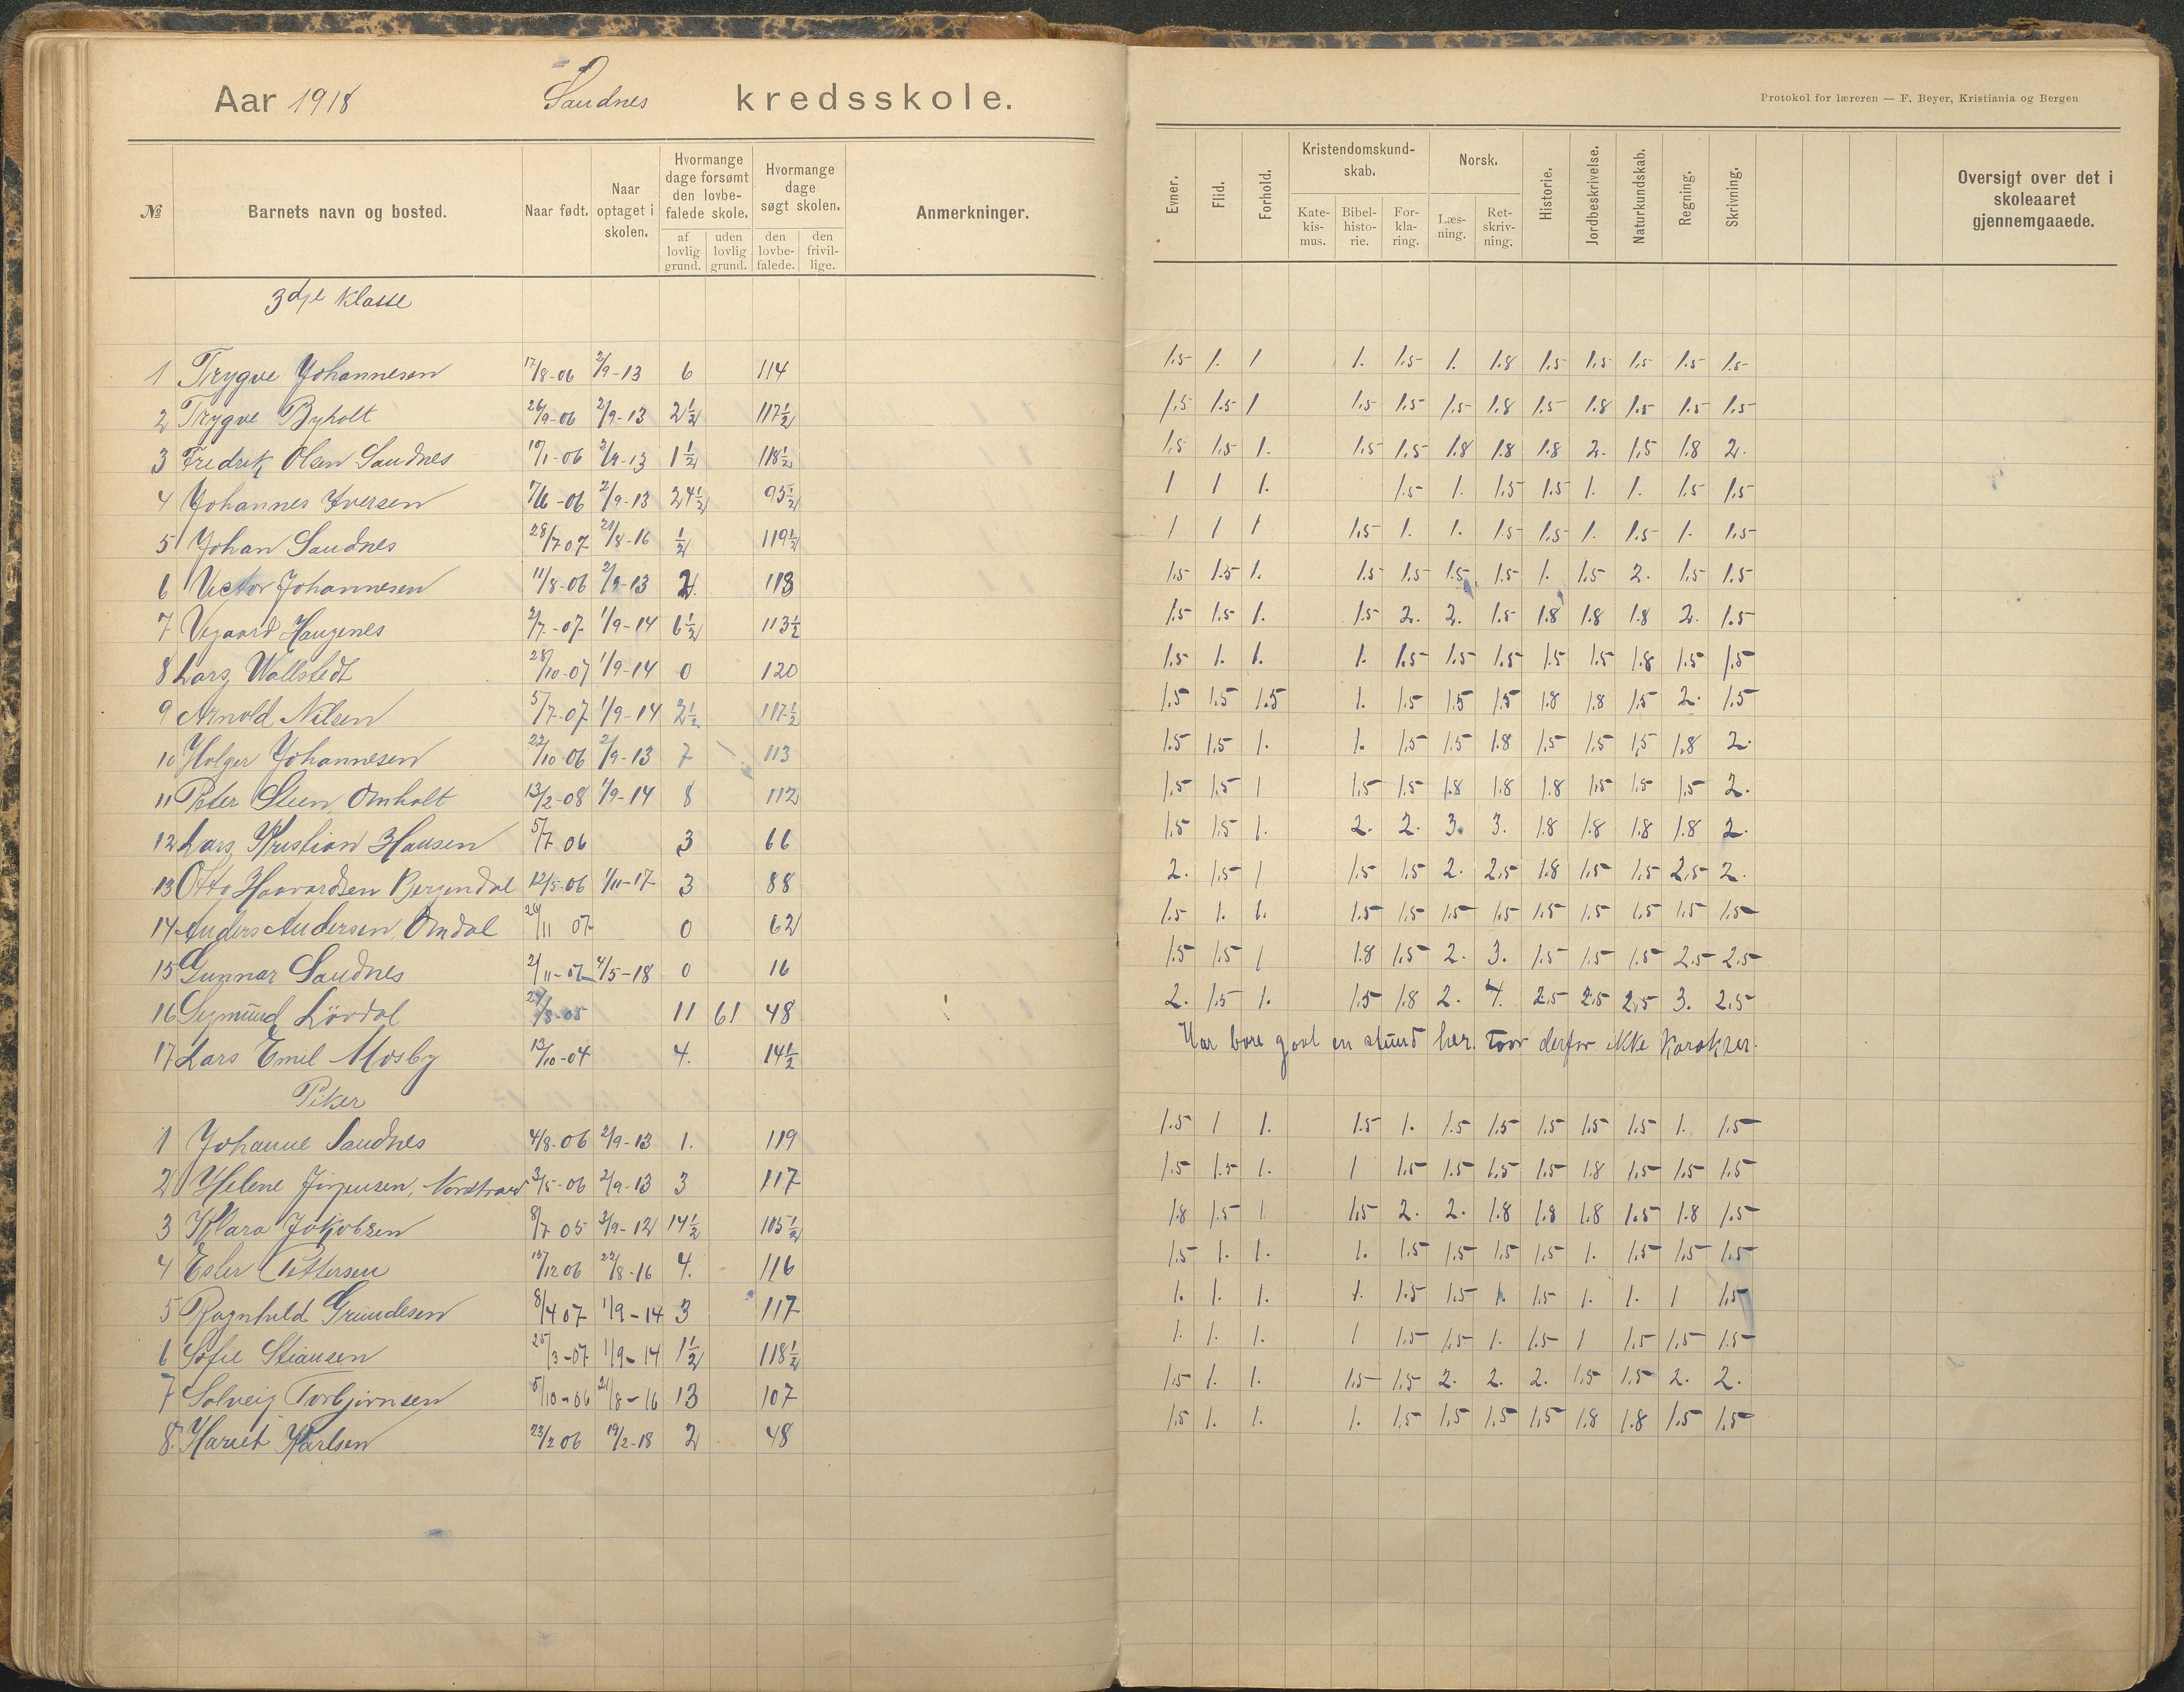 Aar 1918 Saudnes kredsskole.
Protokol for læreren — F. Beyer, Kristiania og Bergen
№ Barnets navn og bosted. Naar født. Naar optaget i skolen. Hvormange dage forsømt den lovbefalede skole. af lovlig grund. uden lovlig grund. Hvormange dage søgt skolen. den lovbefalede. den frivillige. Anmerkninger.
Evner. Flid. Forhold. Kristendomskundskab. Katekismus. Bibelhistorie. Forklaring. Norsk. Læsning. Retskrivning. Historie. Jordbeskrivelse. Naturkundskab. Regning. Skrivning. Oversigt over det i skoleaaret gjennemgaaede.
3dje klasse
1 Trygve Johannesen 17/8-06 2/9-13 6 114 1.5 1. 1 1. 1.5 1. 1.8 1.5 1.5 1.5 1.5 1.5
2 Trygve Byholt 26/9-06 2/9-13 2½ 117½ 1.5 1.5 1 1.5 1.5 1.5 1.8 1.5 1.8 1.5 1.5 1.5
3 Fredrik Olsen Saudnes 10/1-06 2/9-13 1½ 118½ 1.5 1.5 1. 1.5 1.5 1.8 1.8 1.8 2. 1.5 1.8 2.
4 Johannes Iversen 7/6-06 2/9-13 24½ 95½ 1 1 1. 1.5 1. 1.5 1.5 1. 1. 1.5 1.5
5 Johan Saudnes 28/7 07 21/8-16 ½ 119½ 1 1 1 1.5 1. 1. 1.5 1.5 1. 1.5 1. 1.5
6 Victor Johannesen 11/8-06 2/9-13 2. 118 1.5 1.5 1. 1.5 1.5 1.5 1.5 1. 1.5 2. 1.5 1.5
7 Vegaard Haugenes 2/7-07 1/9-14 6½ 113½ 1.5 1.5 1. 1.5 2. 2. 1.5 1.8 1.8 1.8 2. 1.5
8 Lars Wallstedt 28/10-07 1/9-14 0 120 1.5 1. 1. 1. 1.5 1.5 1.5 1.5 1.5 1.8 1.5 1.5
9 Arnold Nilsen 5/7-07 1/9-14 2½ 117½ 1.5 1.5 1.5 1. 1.5 1.5 1.5 1.8 1.8 1.5 2. 1.5
10 Holger Johannesen 22/10-06 2/9-13 7 113 1.5 1.5 1. 1. 1.5 1.5 1.8 1.5 1.5 1.5 1.8 2.
11 Peter Steen, Omholt 13/2-08 1/9-14 8 112 1.5 1.5 1 1.5 1.5 1.8 1.8 1.8 1.5 1.5 1.5 2.
12 Lars Kristian Hansen 5/7 06 3 66 1.5 1.5 1. 2. 2. 3. 3. 1.8 1.8 1.8 1.8 2.
13 Otto Haavardsen Bergendal 12/5-06 1/11-17 3 88 2. 1.5 1 1.5 1.5 2. 2.5 1.8 1.5 1.5 2.5 2.
14 Anders Andersen, Omdal 26/11 07 0 62 1.5 1. 1. 1.5 1.5 1.5 1.5 1.5 1.5 1.5 1.5 1.5
15 Gunnar Saudnes 2/11-07 4/5-18 0 16 1.5 1.5 1 1.8 1.5 2. 3. 1.5 1.5 1.5 2.5 2.5
16 Sigmund Lövdal 24/8-05 11 61 48 2. 1.5 1. 1.5 1.8 2. 4. 2.5 2.5 2.5 3. 2.5
17 Lars Emil Mosby 13/10-04 4. 14½ Har bare gaat en stund her. Faar derfor ikke karakter.
Piker
1 Johanne Saudnes 4/8-06 2/9-13 1. 119 1.5 1 1. 1.5 1. 1.5 1.5 1.5 1.5 1.5 1. 1.5
2 Helene Jörgensen, 3/5-06 2/9-13 3 117 1.5 1.5 1. 1 1.5 1.5 1.5 1.5 1.8 1.5 1.5 1.5
3 Klara Jakobsen 8/7 05 3/9-12 14½ 105½ 1.8 1.5 1 1.5 2. 2. 1.8 1.8 1.8 1.5 1.8 1.5
4 Ester Pettersen 15/12 06 22/8-16 4. 116 1.5 1. 1. 1. 1.5 1.5 1.5 1.5 1. 1.5 1.5 1.5
5 Ragnhild Grundesen 8/4 07 1/9-14 3 117 1. 1. 1. 1. 1.5 1.5 1. 1.5 1. 1. 1 1.5
6 Sofie Stiansen 25/3-07 1/9-14 1½ 118½ 1. 1. 1. 1 1.5 1.5 1. 1.5 1 1.5 1.5 1.5
7 Solveig Torbjörnsen 5/10-06 21/8-16 13 107 1.5 1. 1. 1.5 1.5 2. 2. 2. 1.5 1.5 2. 2.
8. Hariet Karlsen 23/2 06 19/2-18 2 48 1.5 1. 1. 1. 1.5 1.5 1.5 1.5 1.8 1.8 1.5 1.5